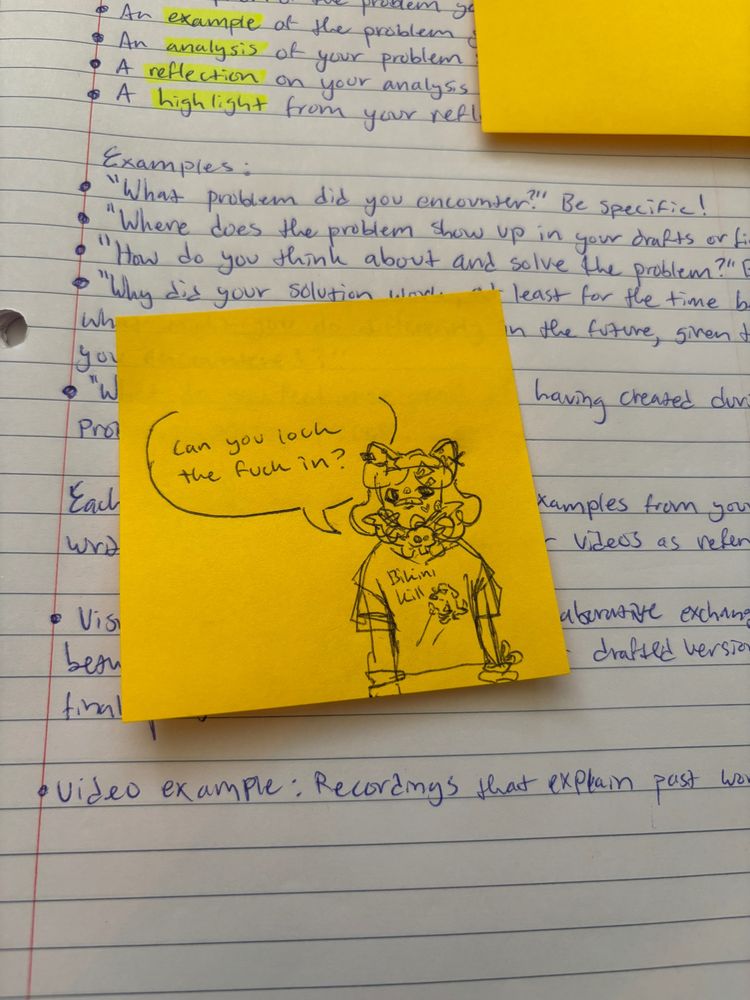 of the problem
• An example of the problem
• An analysis of your problem
• A reflection on your analysis
• A highlight from your refl
Examples:
• "What problem did you encounter?" Be specific!
• "Where does the problem show up in your drafts or fi
• "How do you think about and solve the problem?"
• "Why did your solution work, at least for the time b
in the future, given t
you
• "W having created duri
Pro
Can you lock
the fuck in?
Bikini
Kill
Each examples from you
wr videos as refer
• Vis aborative exchang
betw drafted version
final
• Video example: Recordings that explain past wor